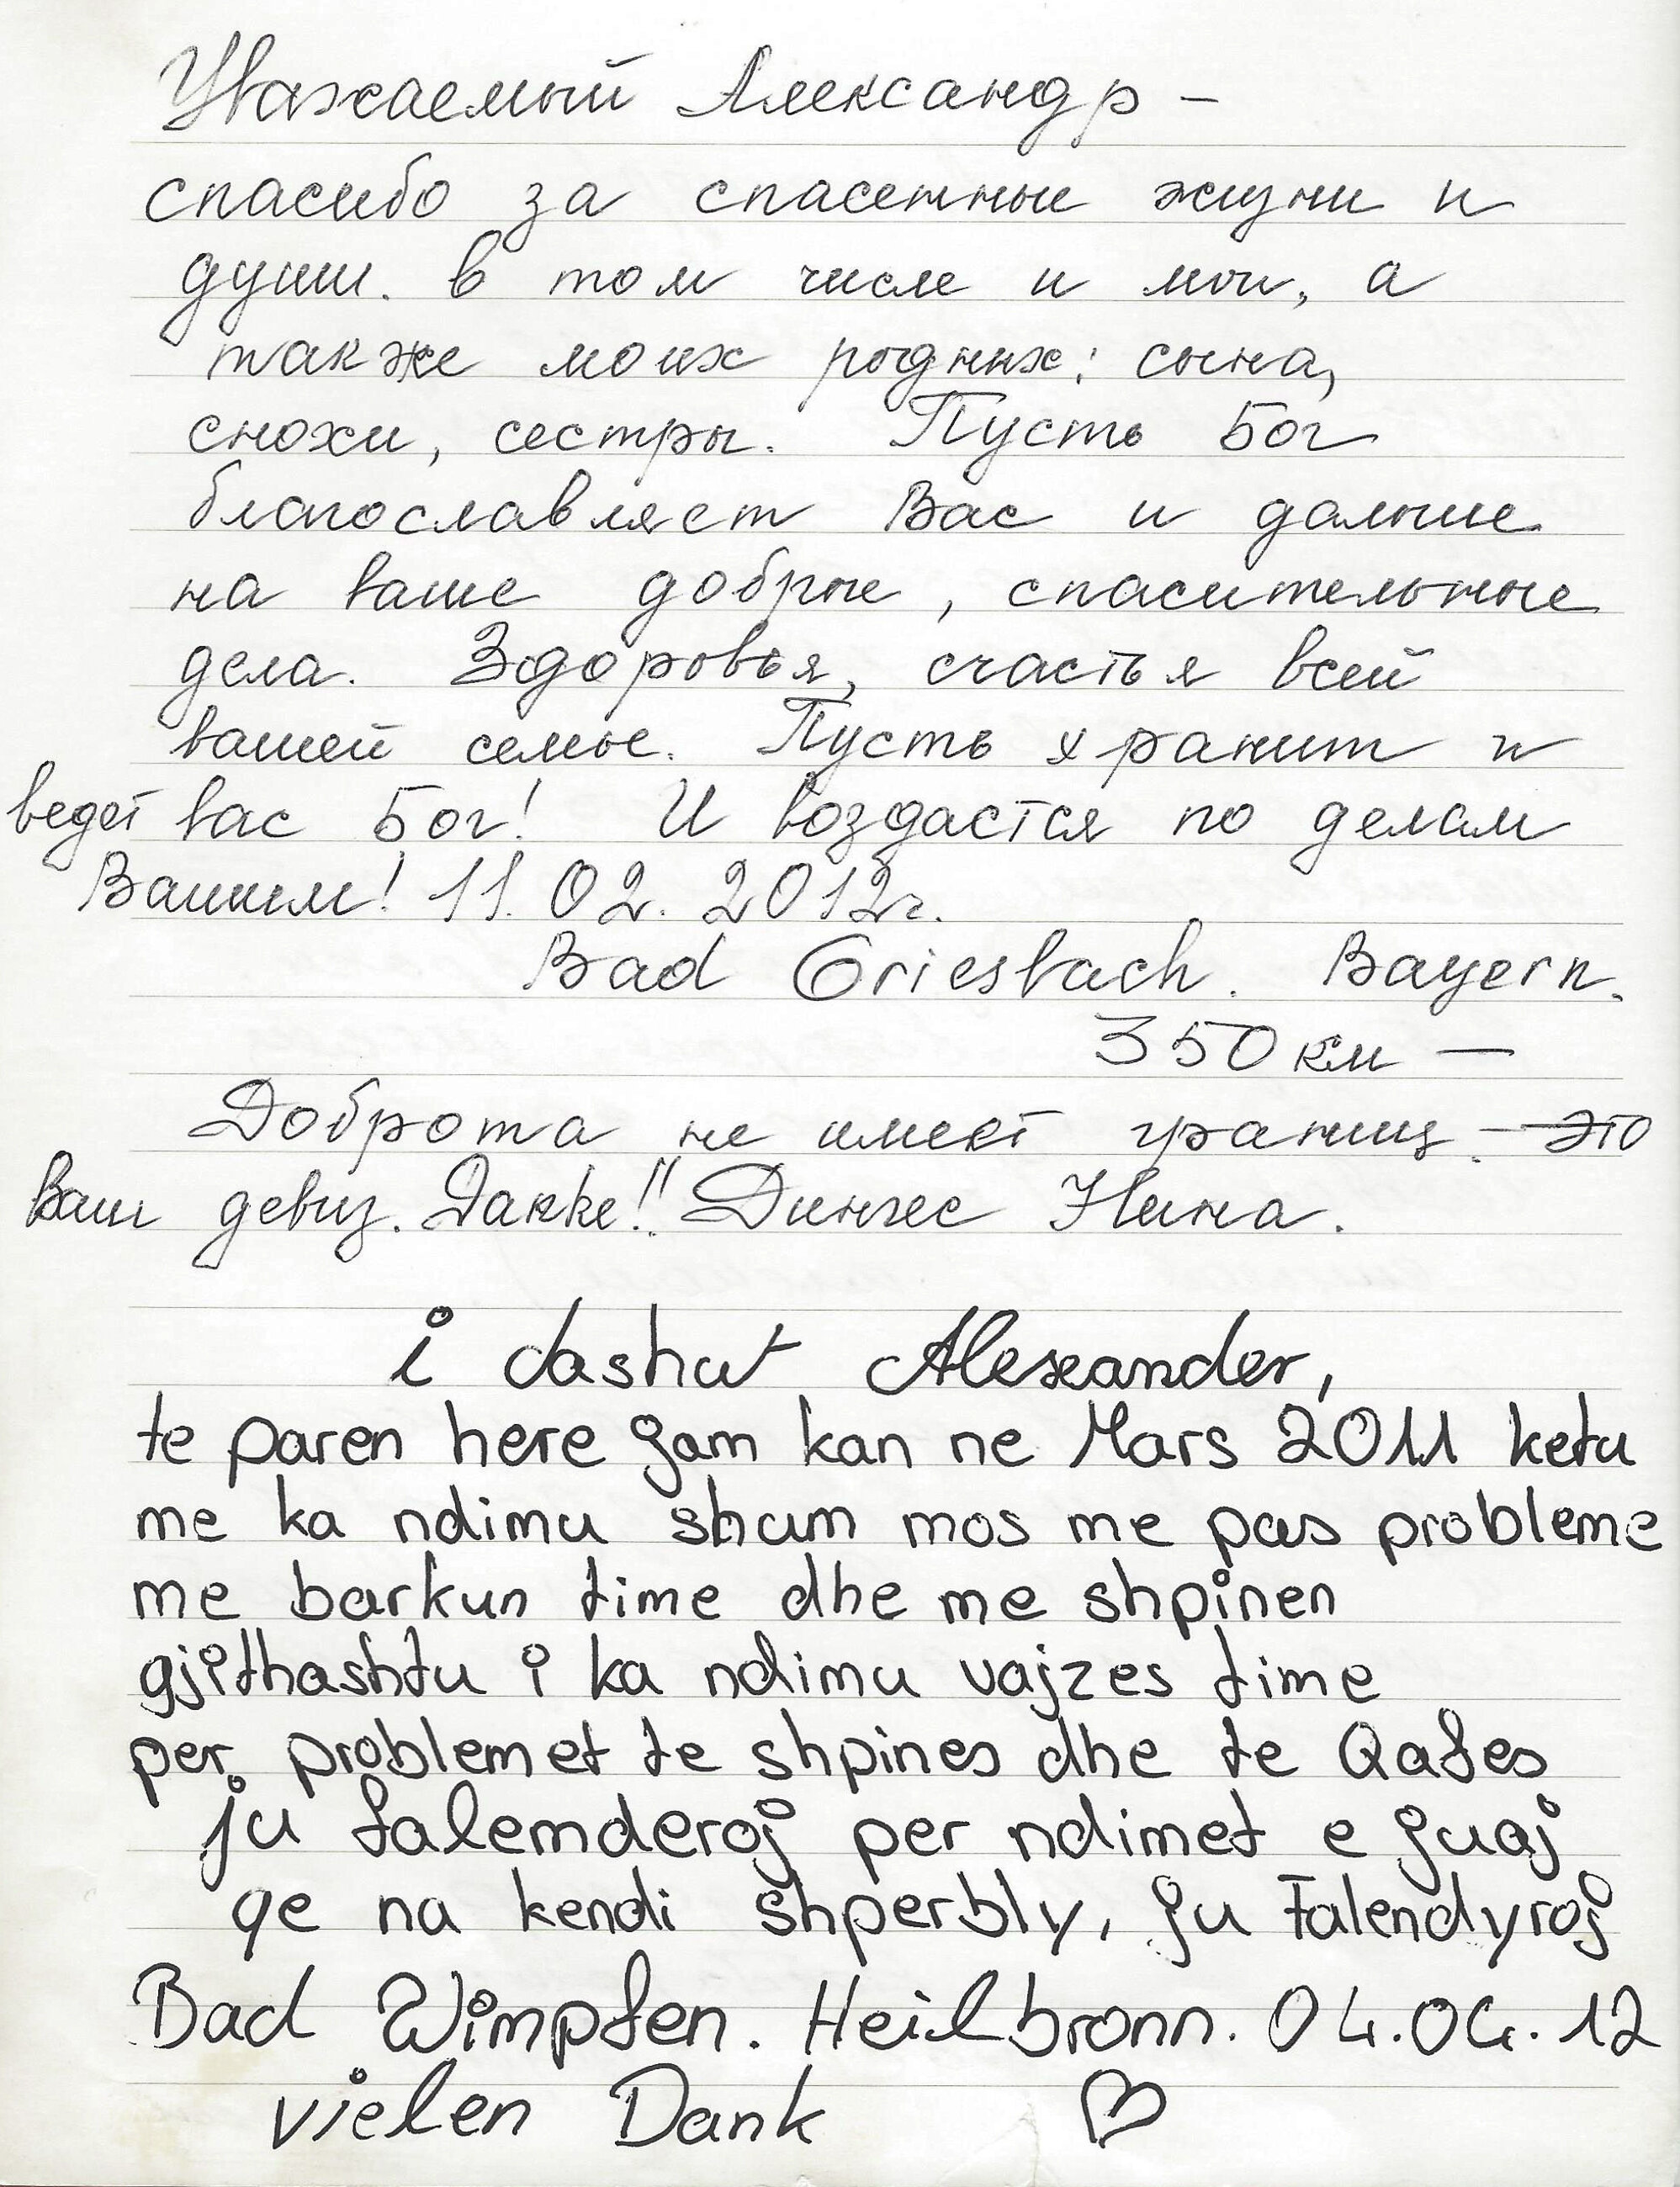 Уважаемый Александр –
спасибо за спасенные жизни и
души. в том числе и мои, а
также моих родных: сына,
снохи, сестры. Пусть Бог
благославляет Вас и дальше
на ваше добрые, спасительные
дела. Здоровья, счастья всей
вашей семье. Пусть хранит и
ведет вас Бог! И воздастся по делам
Вашим! 11.02.2012г.
Bad Griesbach. Bayern.
350 км –
Доброта не имеет границ. – это
Ваш девиз. Danke!! Дингес Нина.
i dashut Alexander,
te paren here jam kan ne Mars 2011 ketu
me ka ndimu shum mos me pas probleme
me barkun time dhe me shpinen
gjithashtu i ka ndimu vajzes time
per problemet te shpines dhe te Qafes
ju falemderoj per ndimet e juaj
qe na kendi shperbly, ju Falendyroj
Bad Wimpfen. Heilbronn. 04.04.12
vielen Dank ♡